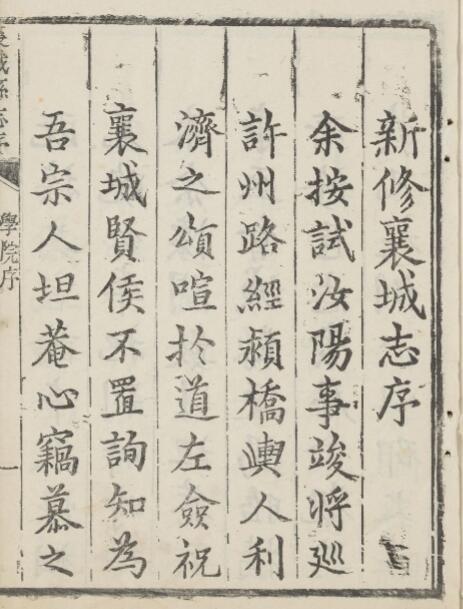 新修襄城志序
余按試汝陽事竣將廵
許州路經潁橋輿人利
濟之頌喧於道左僉祝
襄城賢侯不置詢知為
吾宗人坦菴心竊慕之
襄城縣志序
學院序
一